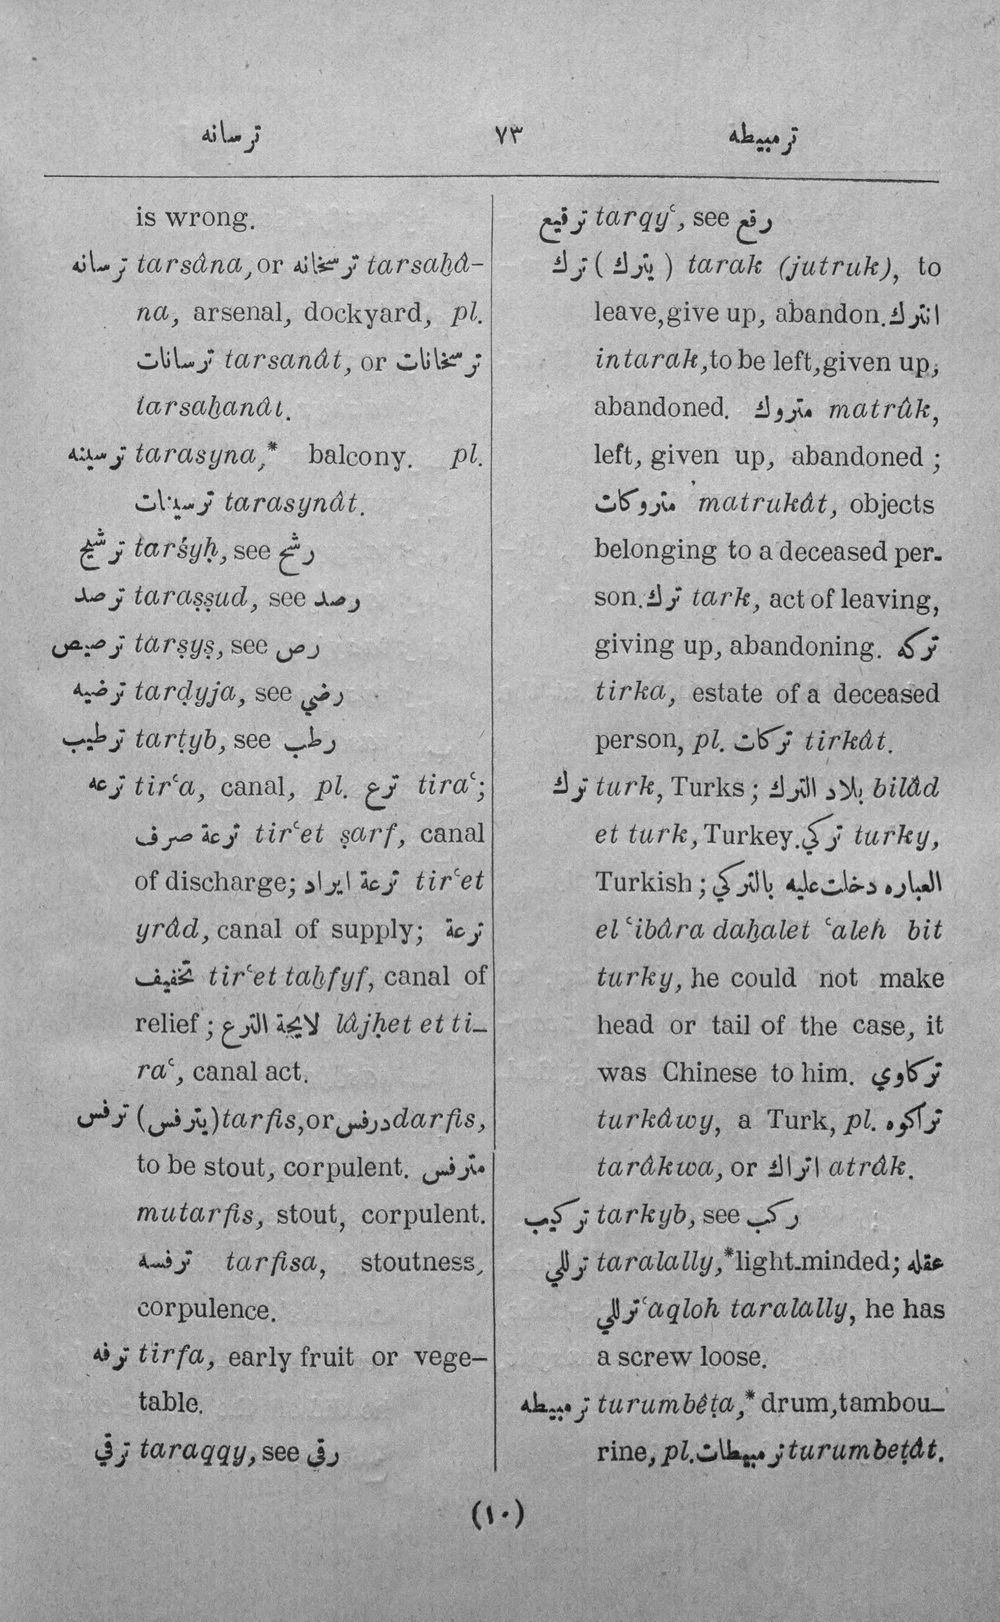 ترسانه ٧٣ ترمبيطه
is wrong.
ترسانه tarsâna, or ترسخانه tarsaḫâ-
na, arsenal, dockyard, pl.
ترسانات tarsanât, or ترسخانات
tarsaḫanât.
ترسينه tarasyna,* balcony. pl.
ترسينات tarasynât.
ترشيح tarśyḥ, see رشح
ترصد taraṣṣud, see رصد
ترصيص tarṣyṣ, see رص
ترضيه tarḍyja, see رضي
ترطيب tarṭyb, see رطب
ترعه tirʿa, canal, pl. ترع tiraʿ;
ترعة صرف tirʿet ṣarf, canal
of discharge; ترعة ايراد tirʿet
yrâd, canal of supply; ترعة
تخفيف tirʿet taḫfyf, canal of
relief; لايحة الترع lâjḥet et ti-
raʿ, canal act.
ترفس (يترفس) tarfis, or درفس darfis,
to be stout, corpulent. مترفس
mutarfis, stout, corpulent.
ترفسه tarfisa, stoutness,
corpulence.
ترفه tirfa, early fruit or vege-
table.
ترقي taraqqy, see رقي
ترقيع tarqyʿ, see رقع
ترك (يترك) tarak (jutruk), to
leave, give up, abandon. انترك
intarak, to be left, given up,
abandoned. متروك matrûk,
left, given up, abandoned;
متروكات matrukât, objects
belonging to a deceased per-
son. ترك tark, act of leaving,
giving up, abandoning. تركه
tirka, estate of a deceased
person, pl. تركات tirkât.
ترك turk, Turks; بلاد الترك bilâd
et turk, Turkey. تركي turky,
Turkish; العباره دخلت عليه بالتركي
el ʿibâra daḫalet ʿaleh bit
turky, he could not make
head or tail of the case, it
was Chinese to him. تركاوي
turkâwy, a Turk, pl. تراكوه
tarâkwa, or اتراك atrâk.
تركيب tarkyb, see ركب
ترللي taralally,* light-minded; عقله
ترللي ʿaqloh taralally, he has
a screw loose.
ترمبيطه turumbêṭa,* drum, tambou-
rine, pl. ترمبيطات turumbeṭât.
(١٠)